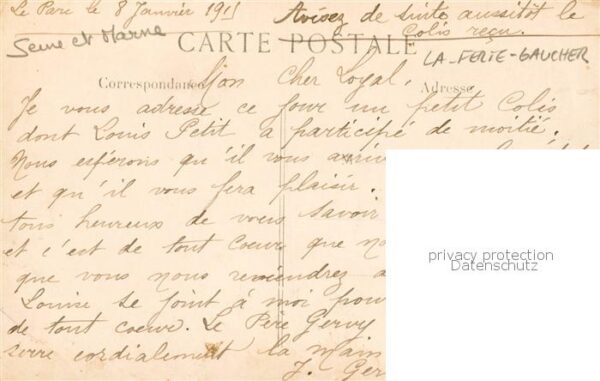 Le Parc le 8 Janvier 1915
Avisez de suite aussitôt le
Colis reçu.
Seine et Marne
CARTE POSTALE
LA-FERTE-GAUCHER
Correspondance
Adresse
Mon Cher Loyal,
Je vous adresse ce jour un petit Colis
dont Louis Petit a participé de moitié.
Nous espérons qu'il vous
et qu'il vous fera plaisir.
tous heureux de vous savoir
et c'est de tout coeur que
que vous nous reviendrez
Louise se joint à moi pour
de tout coeur. Le Père Gervy
serre cordialement la main
J. Ger
privacy protection
Datenschutz